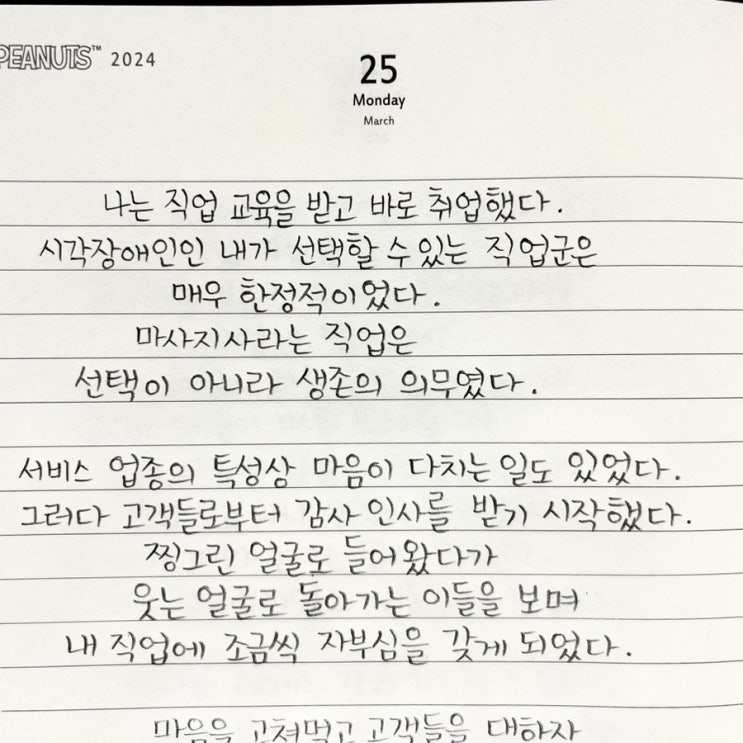 PEANUTS™ 2024
25
Monday
March
나는 직업 교육을 받고 바로 취업했다.
시각장애인인 내가 선택할 수 있는 직업군은
매우 한정적이었다.
마사지사라는 직업은
선택이 아니라 생존의 의무였다.
서비스 업종의 특성상 마음이 다치는 일도 있었다.
그러다 고객들로부터 감사 인사를 받기 시작했다.
찡그린 얼굴로 들어왔다가
웃는 얼굴로 돌아가는 이들을 보며
내 직업에 조금씩 자부심을 갖게 되었다.
마음을 고쳐먹고 고객들을 대하자